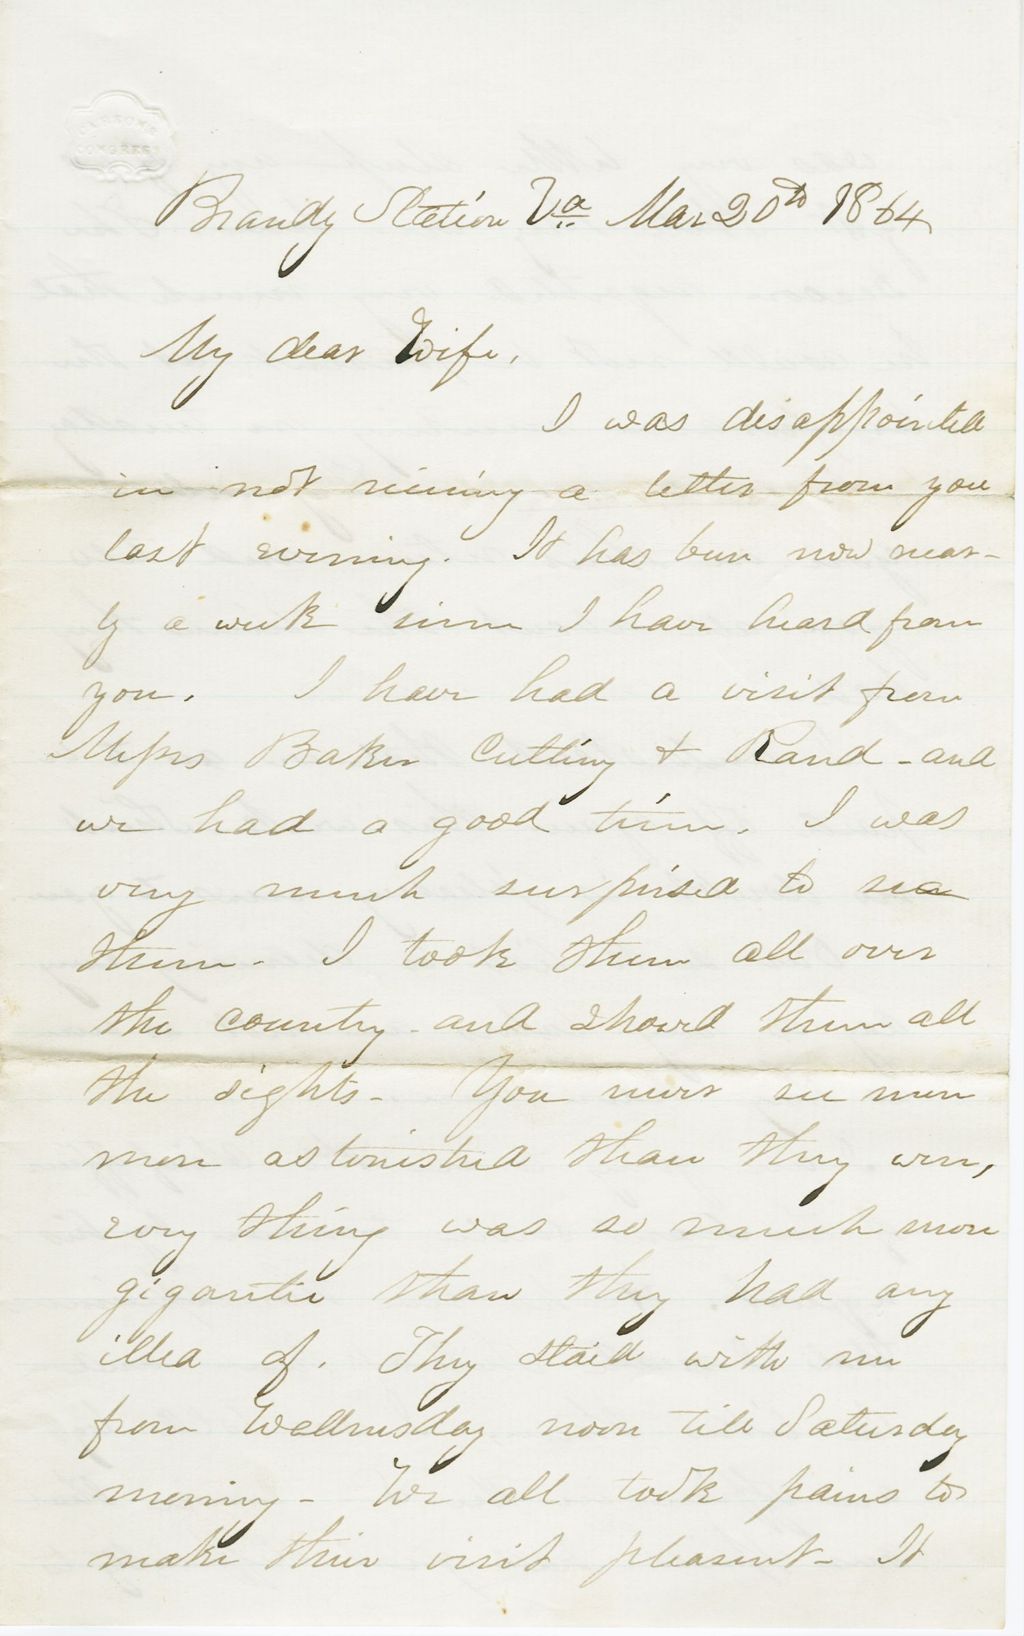 CARSON'S
CONGRESS
Brandy Station Va Mar 20th 1864
My dear Wife,
I was disappointed
in not receiving a letter from you
last evening. It has been now near-
ly a week since I have heard from
you. I have had a visit from
Messrs Baker Cutting + Rand - and
we had a good time. I was
very much surprised to see
them - I took them all over
the country - and showed them all
the sights - You never see men
more astonished than they were,
every thing was so much more
gigantic than they had any
idea of. They staid with me
from Wednesday noon till Saturday
morning - We all took pains to
make their visit pleasent - It